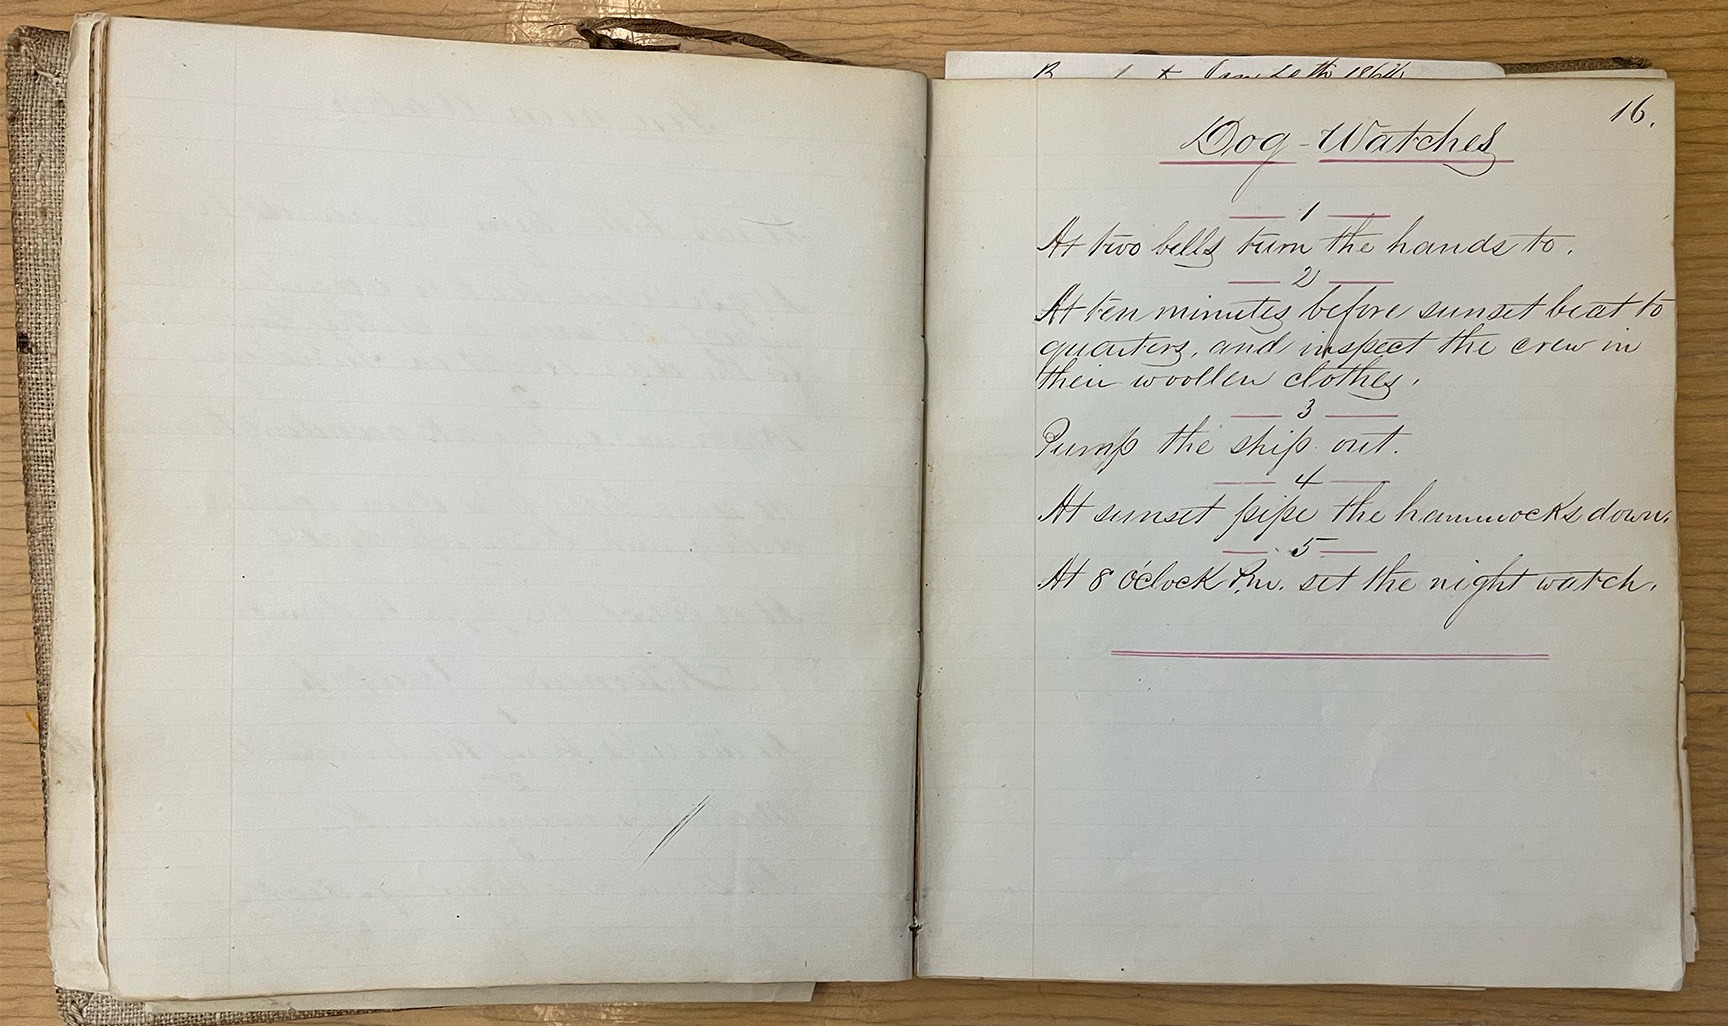 16.
Dog-Watches
1
At two bells turn the hands to.
2
At ten minutes before sunset beat to
quarters, and inspect the crew in
their woollen clothes.
3
Pump the ship out.
4
At sunset pipe the hammocks down.
5
At 8 o'clock P.m. set the night watch.